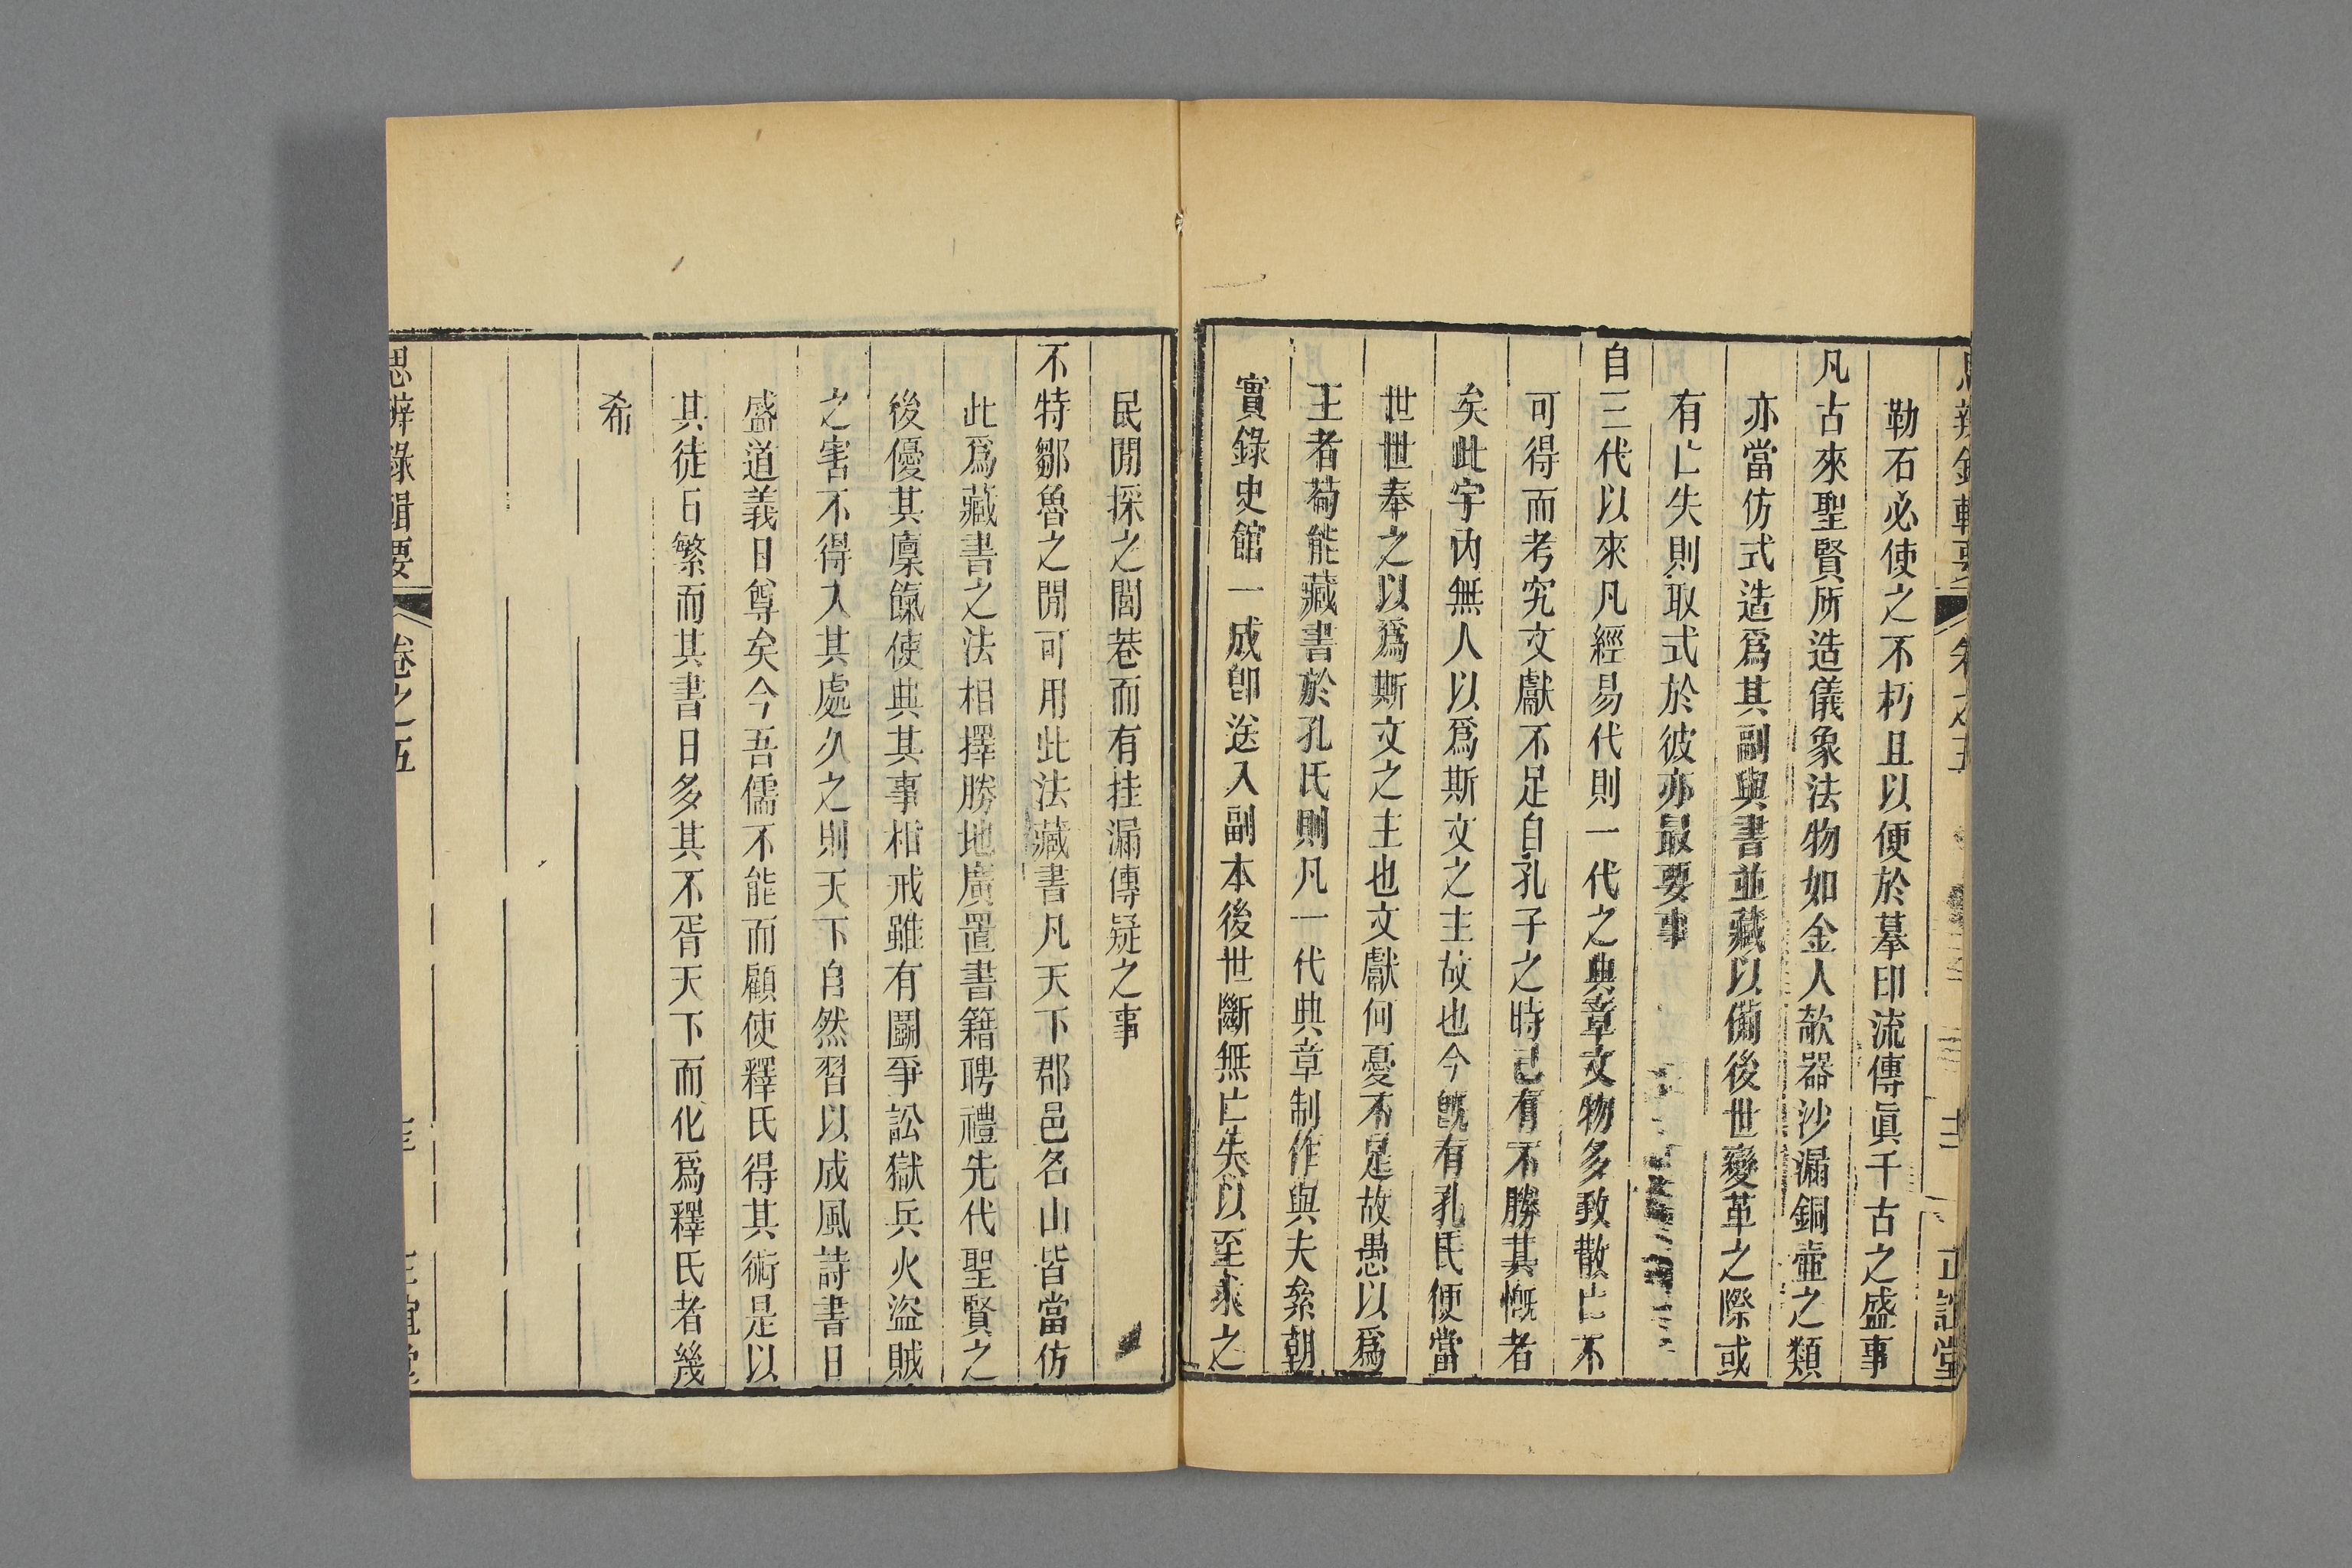 勒石必使之不朽且以便於摹印流傳眞千古之盛事
凡古來聖賢所造儀象法物如金人欹器沙漏銅壺之類
亦當仿式造爲其副與書並藏以備後世變革之際或
有亡失則取式於彼亦最要事
自三代以來凡經易代則一代之典章文物多致散亡不
可得而考究文獻不足自孔子之時已有不勝其慨者
矣此宇內無人以爲斯文之主故也今旣有孔氏便當
世世奉之以爲斯文之主也文獻何憂不足故愚以爲
王者苟能藏書於孔氏則凡一代典章制作與夫絫朝
實錄史館一成卽送入副本後世斷無亡失以至求之
民閒採之閭巷而有挂漏傳疑之事
不特鄒魯之閒可用此法藏書凡天下郡邑名山皆當仿
此爲藏書之法相擇勝地廣置書籍聘禮先代聖賢之
後優其廩餼使典其事相戒雖有鬭爭訟獄兵火盜賊
之害不得入其處久之則天下自然習以成風詩書日
盛道義日尊矣今吾儒不能而顧使釋氏得其術是以
其徒日繁而其書日多其不胥天下而化爲釋氏者幾
希
思辨錄輯要
卷之五